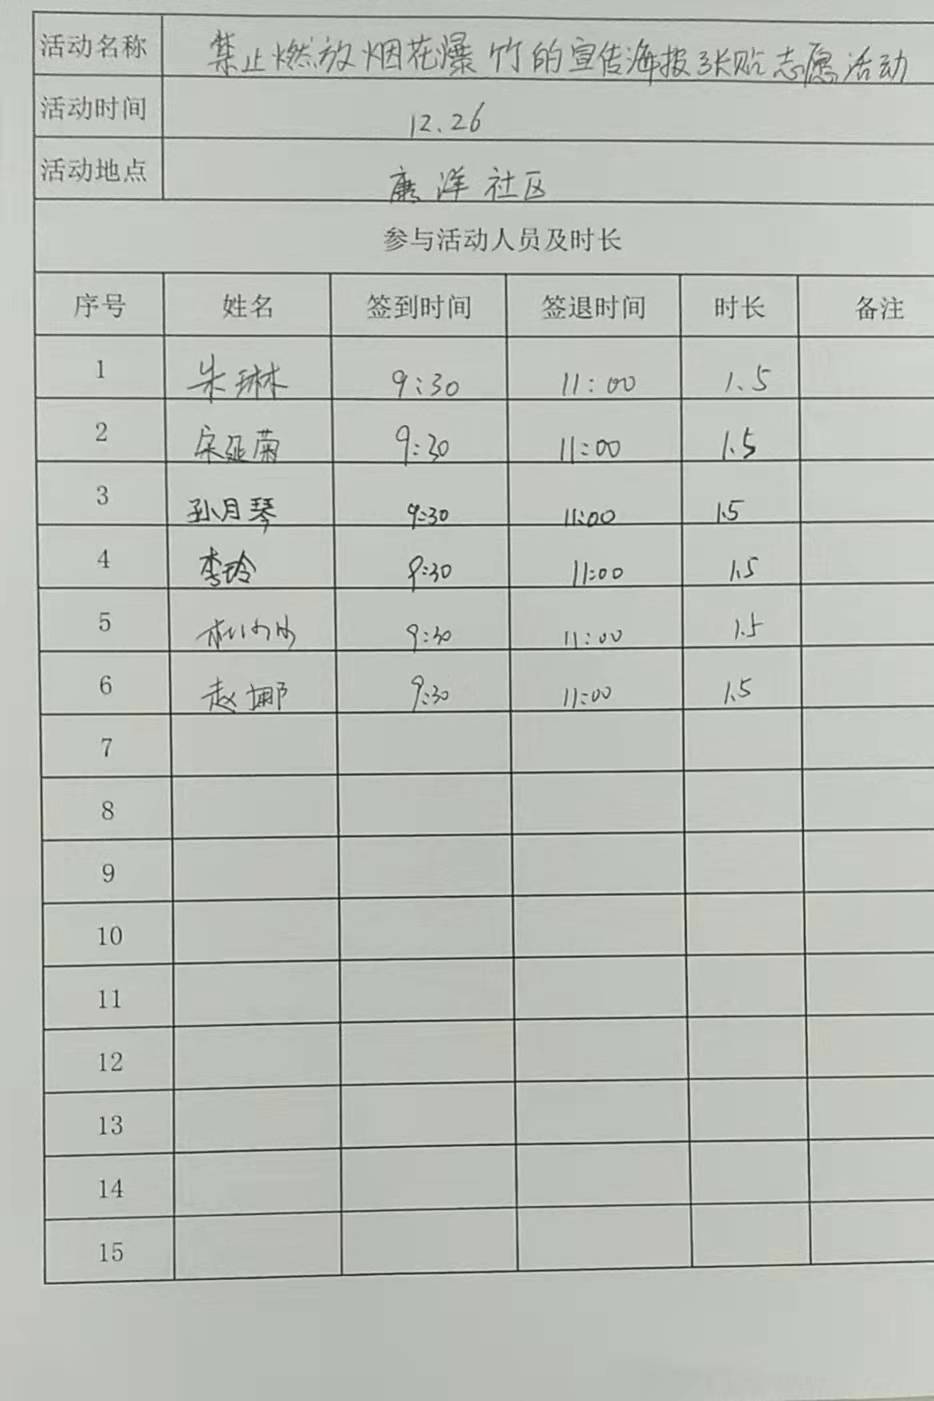 活动名称 禁止燃放烟花爆竹的宣传海报张贴志愿活动
活动时间 12.26
活动地点 唐洋社区
参与活动人员及时长
序号 姓名 签到时间 签退时间 时长 备注
1 朱琳 9:30 11:00 1.5
2 宋延菊 9:30 11:00 1.5
3 孙月琴 9:30 11:00 1.5
4 李玲 9:30 11:00 1.5
5 9:30 11:00 1.5
6 赵娜 9:30 11:00 1.5
7
8
9
10
11
12
13
14
15